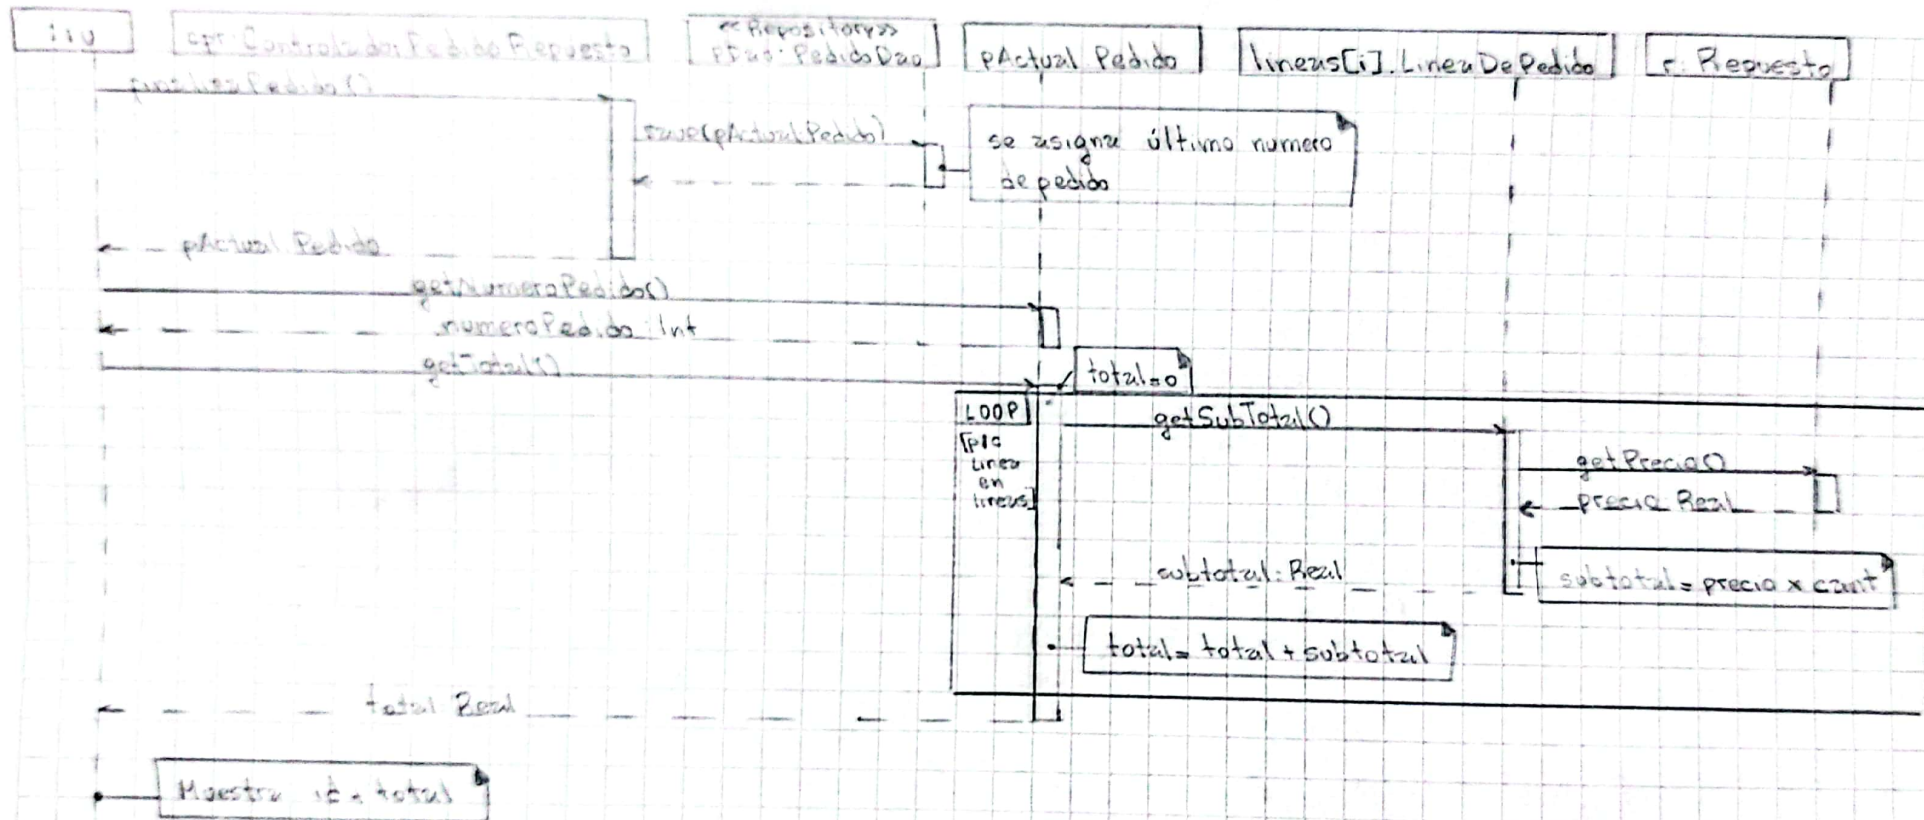 : iu
cpr: ControladorPedidoRepuesto
<<Repository>>
pDao: PedidoDao
pActual Pedido
lineas[i].LineaDePedido
r: Repuesto
finalizaPedido()
save(pActual:Pedido)
se asigna último numero
de pedido
pActual Pedido
getNumeroPedido()
numeroPedido: Int
getTotal()
total=0
LOOP
getSubTotal()
linea
en
lineas]
getPrecio()
precio Real
subtotal: Real
subtotal= precio x cant
total= total + subtotal
total Real
Muestra total